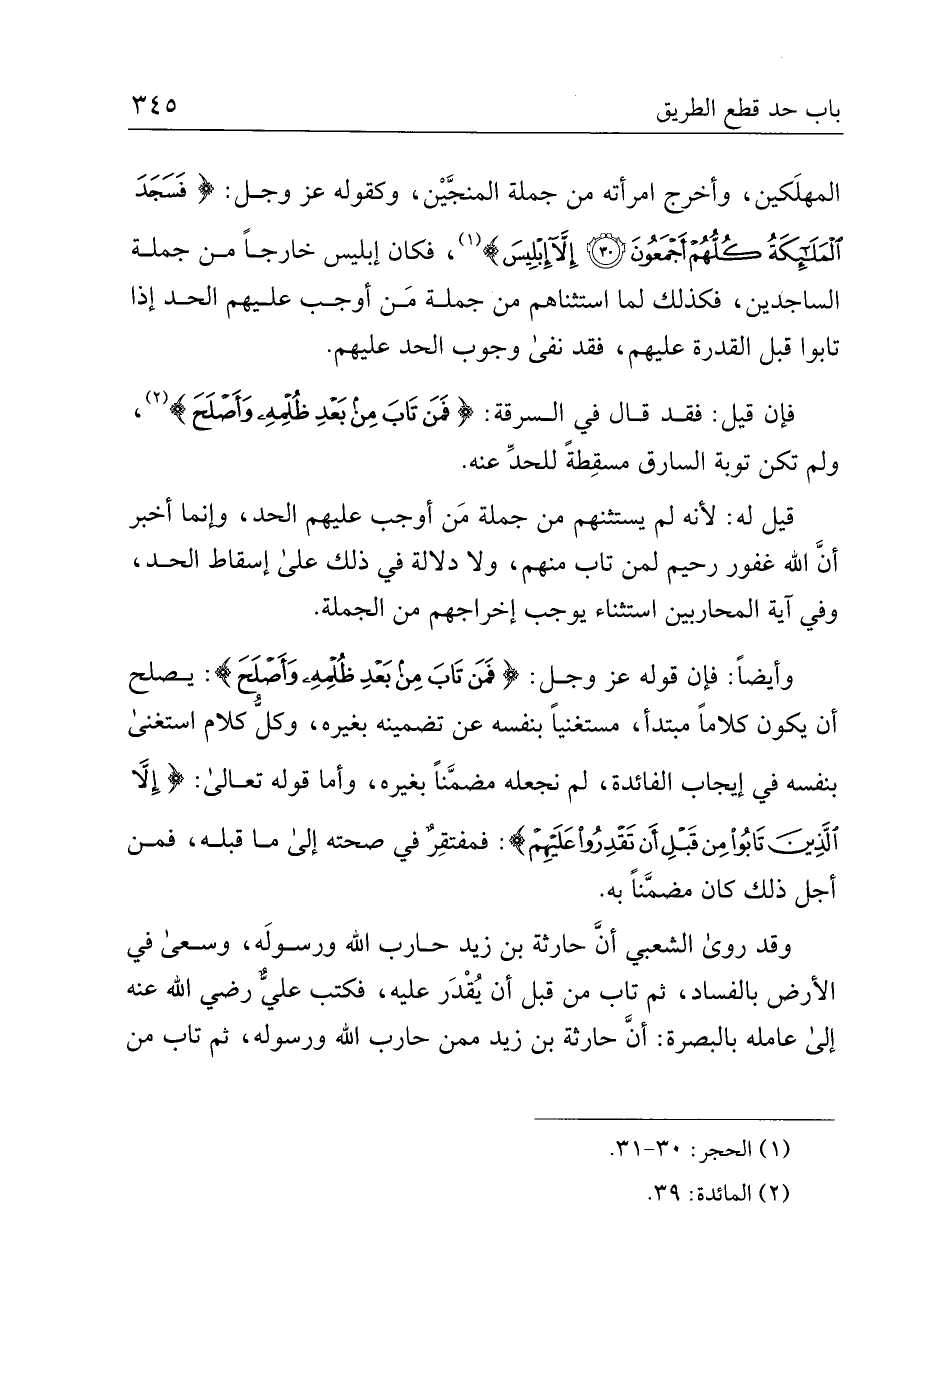 باب حد قطع الطريق ٣٤٥
المهلَكين، وأخرج امرأته من جملة المنجَّيْن، وكقوله عز وجل: ﴿ فَسَجَدَ
ٱلْمَلَٰٓئِكَةُ كُلُّهُمْ أَجْمَعُونَ ٣٠ إِلَّآ إِبْلِيسَ ﴾(١)، فكان إبليس خارجاً من جملة
الساجدين، فكذلك لما استثناهم من جملة مَن أوجب عليهم الحد إذا
تابوا قبل القدرة عليهم، فقد نفىٰ وجوب الحد عليهم.
فإن قيل: فقد قال في السرقة: ﴿ فَمَن تَابَ مِنۢ بَعْدِ ظُلْمِهِۦ وَأَصْلَحَ ﴾(٢)،
ولم تكن توبة السارق مسقِطةً للحدِّ عنه.
قيل له: لأنه لم يستثنهم من جملة مَن أوجب عليهم الحد، وإنما أخبر
أنَّ الله غفور رحيم لمن تاب منهم، ولا دلالة في ذلك علىٰ إسقاط الحد،
وفي آية المحاربين استثناء يوجب إخراجهم من الجملة.
وأيضاً: فإن قوله عز وجل: ﴿ فَمَن تَابَ مِنۢ بَعْدِ ظُلْمِهِۦ وَأَصْلَحَ ﴾: يصلح
أن يكون كلاماً مبتدأ، مستغنياً بنفسه عن تضمينه بغيره، وكلُّ كلام استغنىٰ
بنفسه في إيجاب الفائدة، لم نجعله مضمَّناً بغيره، وأما قوله تعالىٰ: ﴿ إِلَّا
ٱلَّذِينَ تَابُوا۟ مِن قَبْلِ أَن تَقْدِرُوا۟ عَلَيْهِمْ ﴾: فمفتقِرٌ في صحته إلىٰ ما قبله، فمن
أجل ذلك كان مضمَّناً به.
وقد روىٰ الشعبي أنَّ حارثة بن زيد حارب الله ورسولَه، وسعىٰ في
الأرض بالفساد، ثم تاب من قبل أن يُقْدَر عليه، فكتب عليٌّ رضي الله عنه
إلىٰ عامله بالبصرة: أنَّ حارثة بن زيد ممن حارب الله ورسوله، ثم تاب من
(١) الحجر: ٣٠-٣١.
(٢) المائدة: ٣٩.